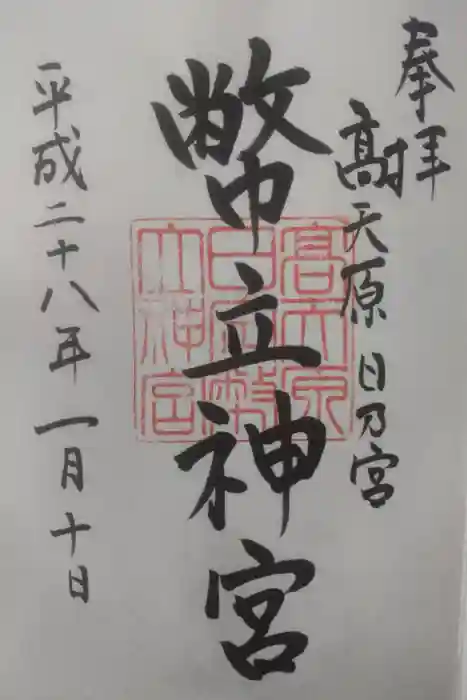 奉拝
髙天原 日乃宮
幣立神宮
平成二十八年一月十日
髙天原
日宮幣
立神宮